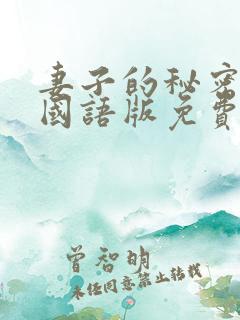 妻子的秘密
國語版免費
曾智明
未经同意禁止转载